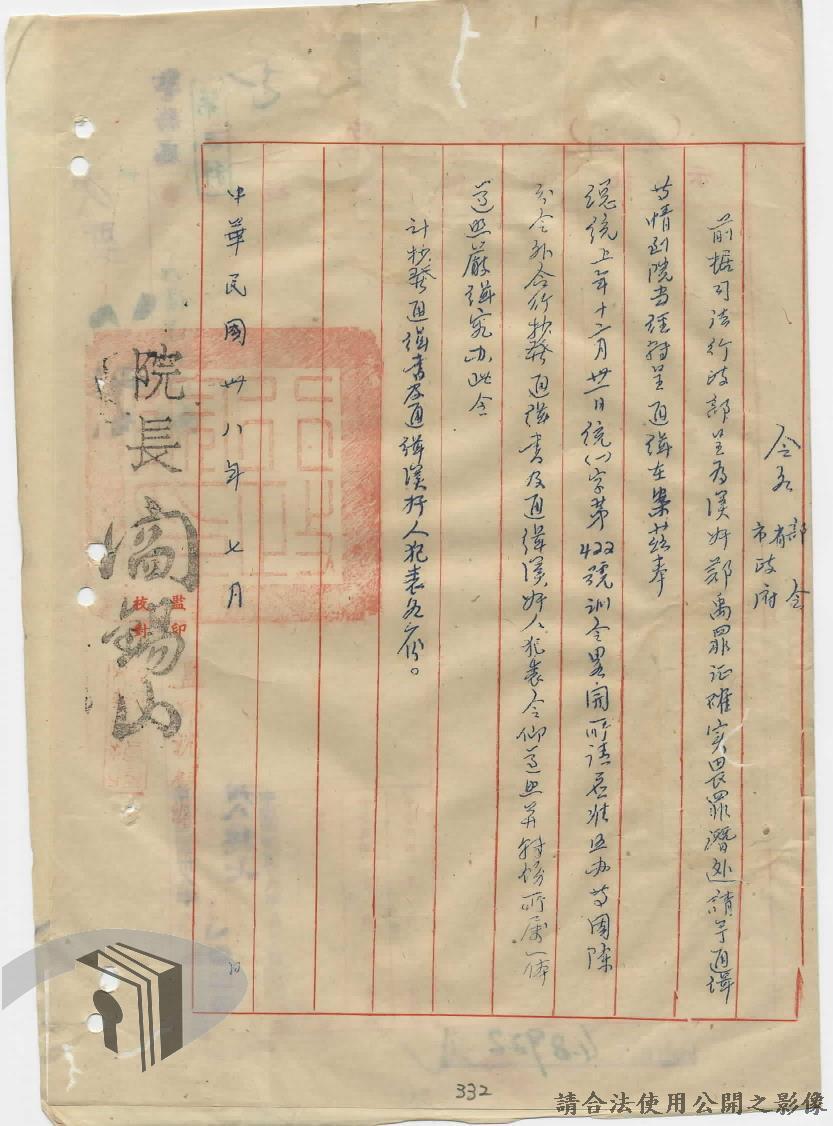 令各部會
省
市政府
前据司法行政部呈為漢奸鄭禹罪証確实畏罪潛逃請予通緝
等情到院当經轉呈通緝在案茲奉
總統上年十二月卅一日統(一)字第422號訓令畧開所請應准照办等因除
分令外合行抄發通緝書及通緝漢奸人犯表令仰遵照并轉飭所屬一体
遵照嚴緝究办此令
计抄發通緝書及通緝漢奸人犯表各一份。
中華民國卅八年七月 日
院長閻錫山
監印
校對
332
請合法使用公開之影像